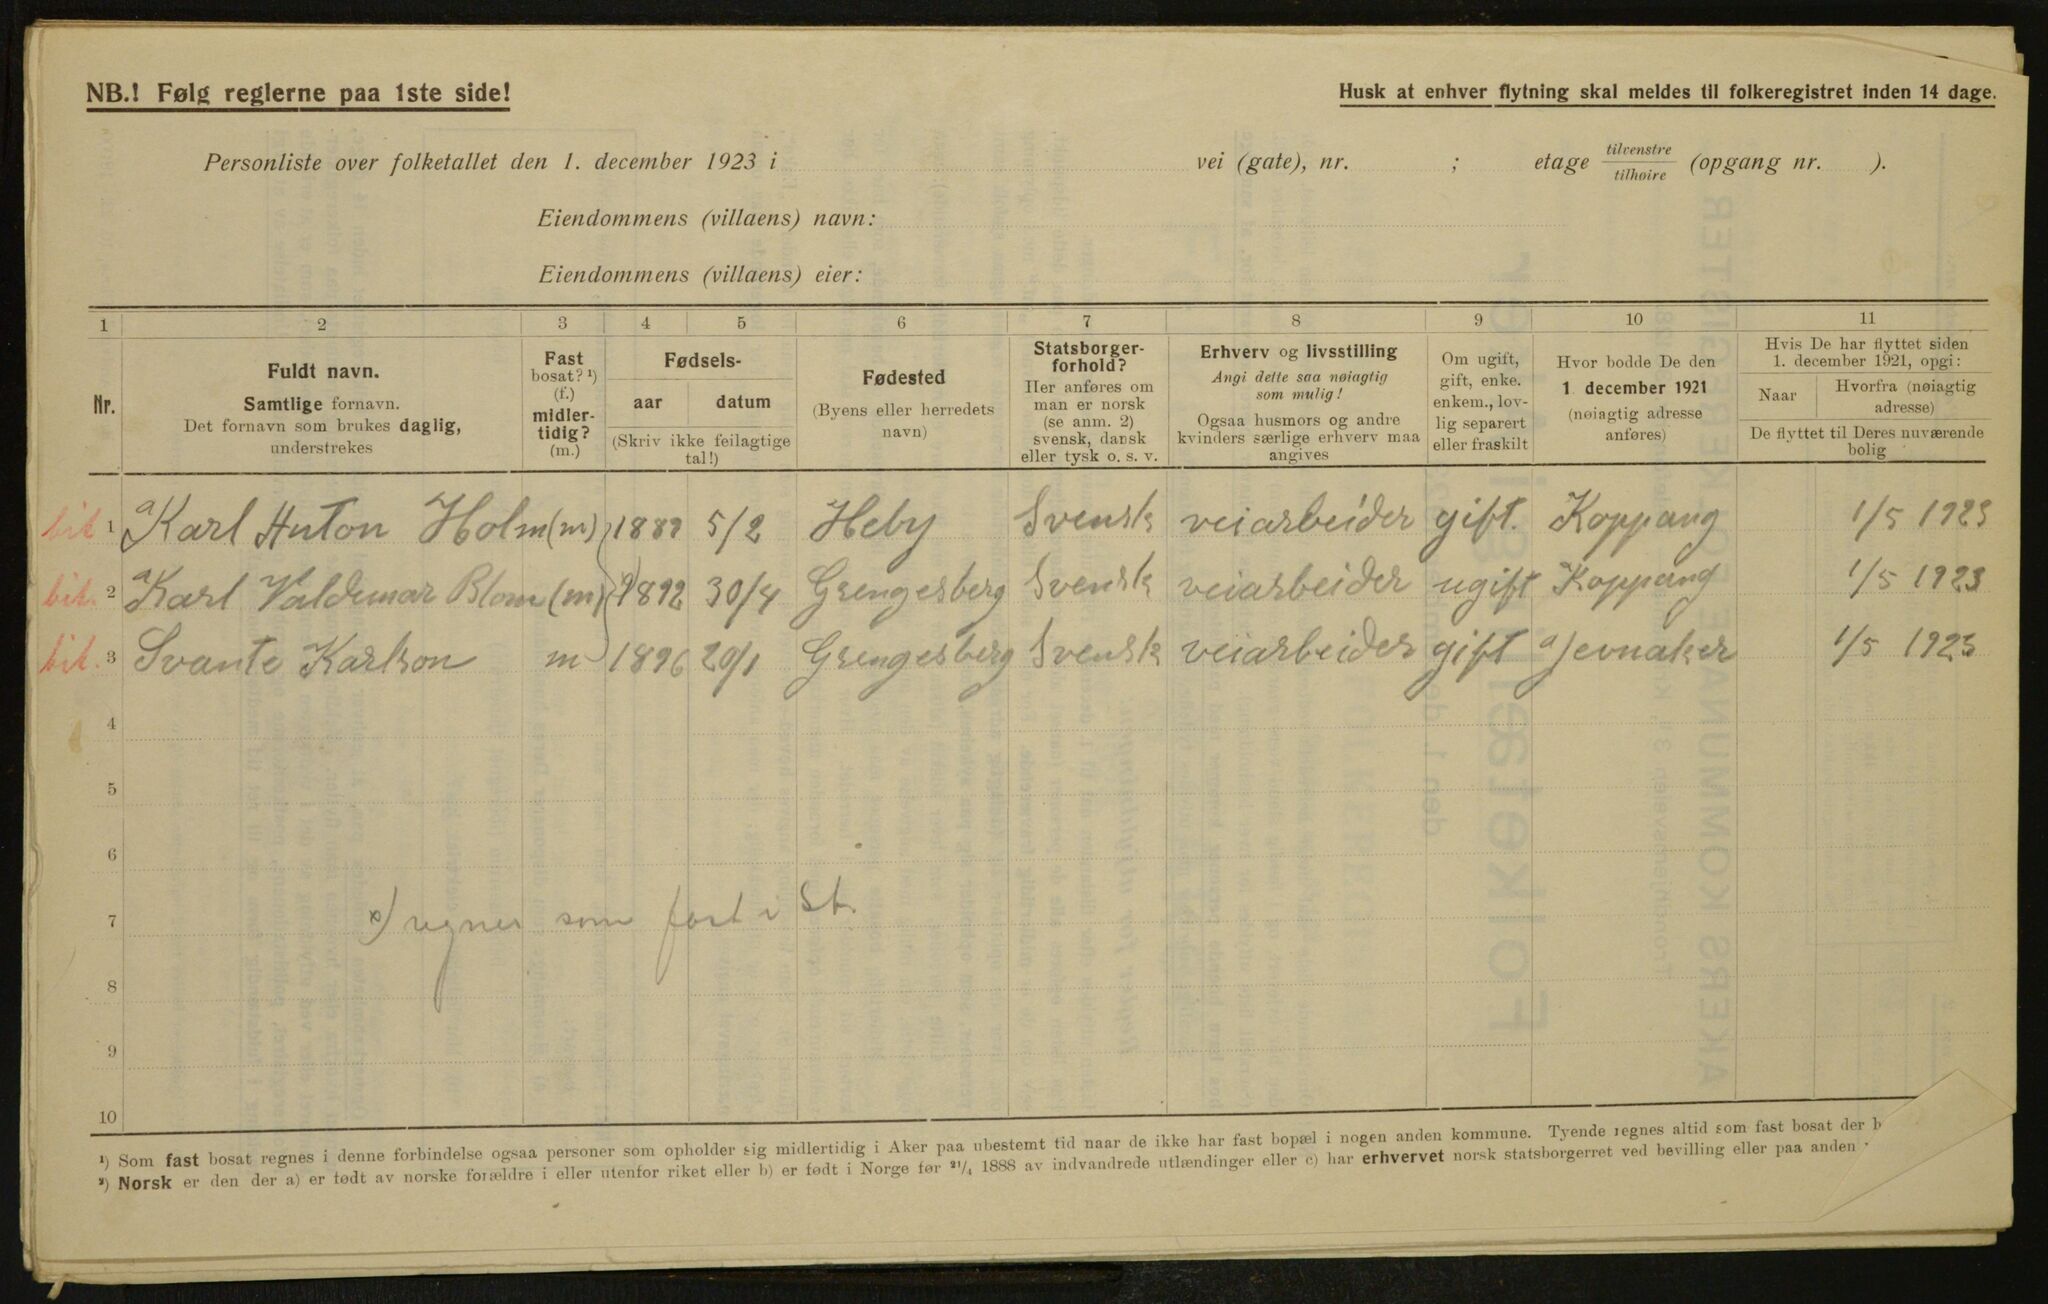 NB.! Følg reglerne paa 1ste side!
Husk at enhver flytning skal meldes til folkeregistret inden 14 dage.
Personliste over folketallet den 1. december 1923 i vei (gate), nr. ; etage tilvenstre tilhøire (opgang nr. ).
Eiendommens (villaens) navn:
Eiendommens (villaens) eier:
1 2 3 4 5 6 7 8 9 10 11
Nr.
Fuldt navn.
Samtlige fornavn.
Det fornavn som brukes daglig,
understrekes
Fast
bosat? ¹)
(f.)
midler-
tidig?
(m.)
Fødsels-
aar datum
(Skriv ikke feilagtige
tal!)
Fødested
(Byens eller herredets
navn)
Statsborger-
forhold?
Her anføres om
man er norsk
(se anm. 2)
svensk, dansk
eller tysk o. s. v.
Erhverv og livsstilling
Angi dette saa nøiagtig
som mulig!
Ogsaa husmors og andre
kvinders særlige erhverv maa
angives
Om ugift,
gift, enke.
enkem., lov-
lig separert
eller fraskilt
Hvor bodde De den
1. december 1921
(nøiagtig adresse
anføres)
Hvis De har flyttet siden
1. december 1921, opgi:
Naar
Hvorfra (nøiagtig
adresse)
De flyttet til Deres nuværende
bolig
bit 1 Karl Anton Holm (m) 1889 5/2 Heby Svensk veiarbeider gift. Koppang 1/5 1923
bit. 2 Karl Valdemar Blom (m) 1892 30/4 Grengesberg Svensk veiarbeider ugift Koppang 1/5 1923
bit. 3 Svante Karlson m 1896 20/1 Grengesberg Svensk veiarbeider gift Jevnaker 1/5 1923
4
5
6
7 x) regnes som fast i St.
8
9
10
¹) Som fast bosat regnes i denne forbindelse ogsaa personer som opholder sig midlertidig i Aker paa ubestemt tid naar de ikke har fast bopæl i nogen anden kommune. Tyende regnes altid som fast bosat der b
²) Norsk er den der a) er født av norske forældre i eller utenfor riket eller b) er født i Norge før ²¹/₄ 1888 av indvandrede utlændinger eller c) har erhvervet norsk statsborgerret ved bevilling eller paa anden